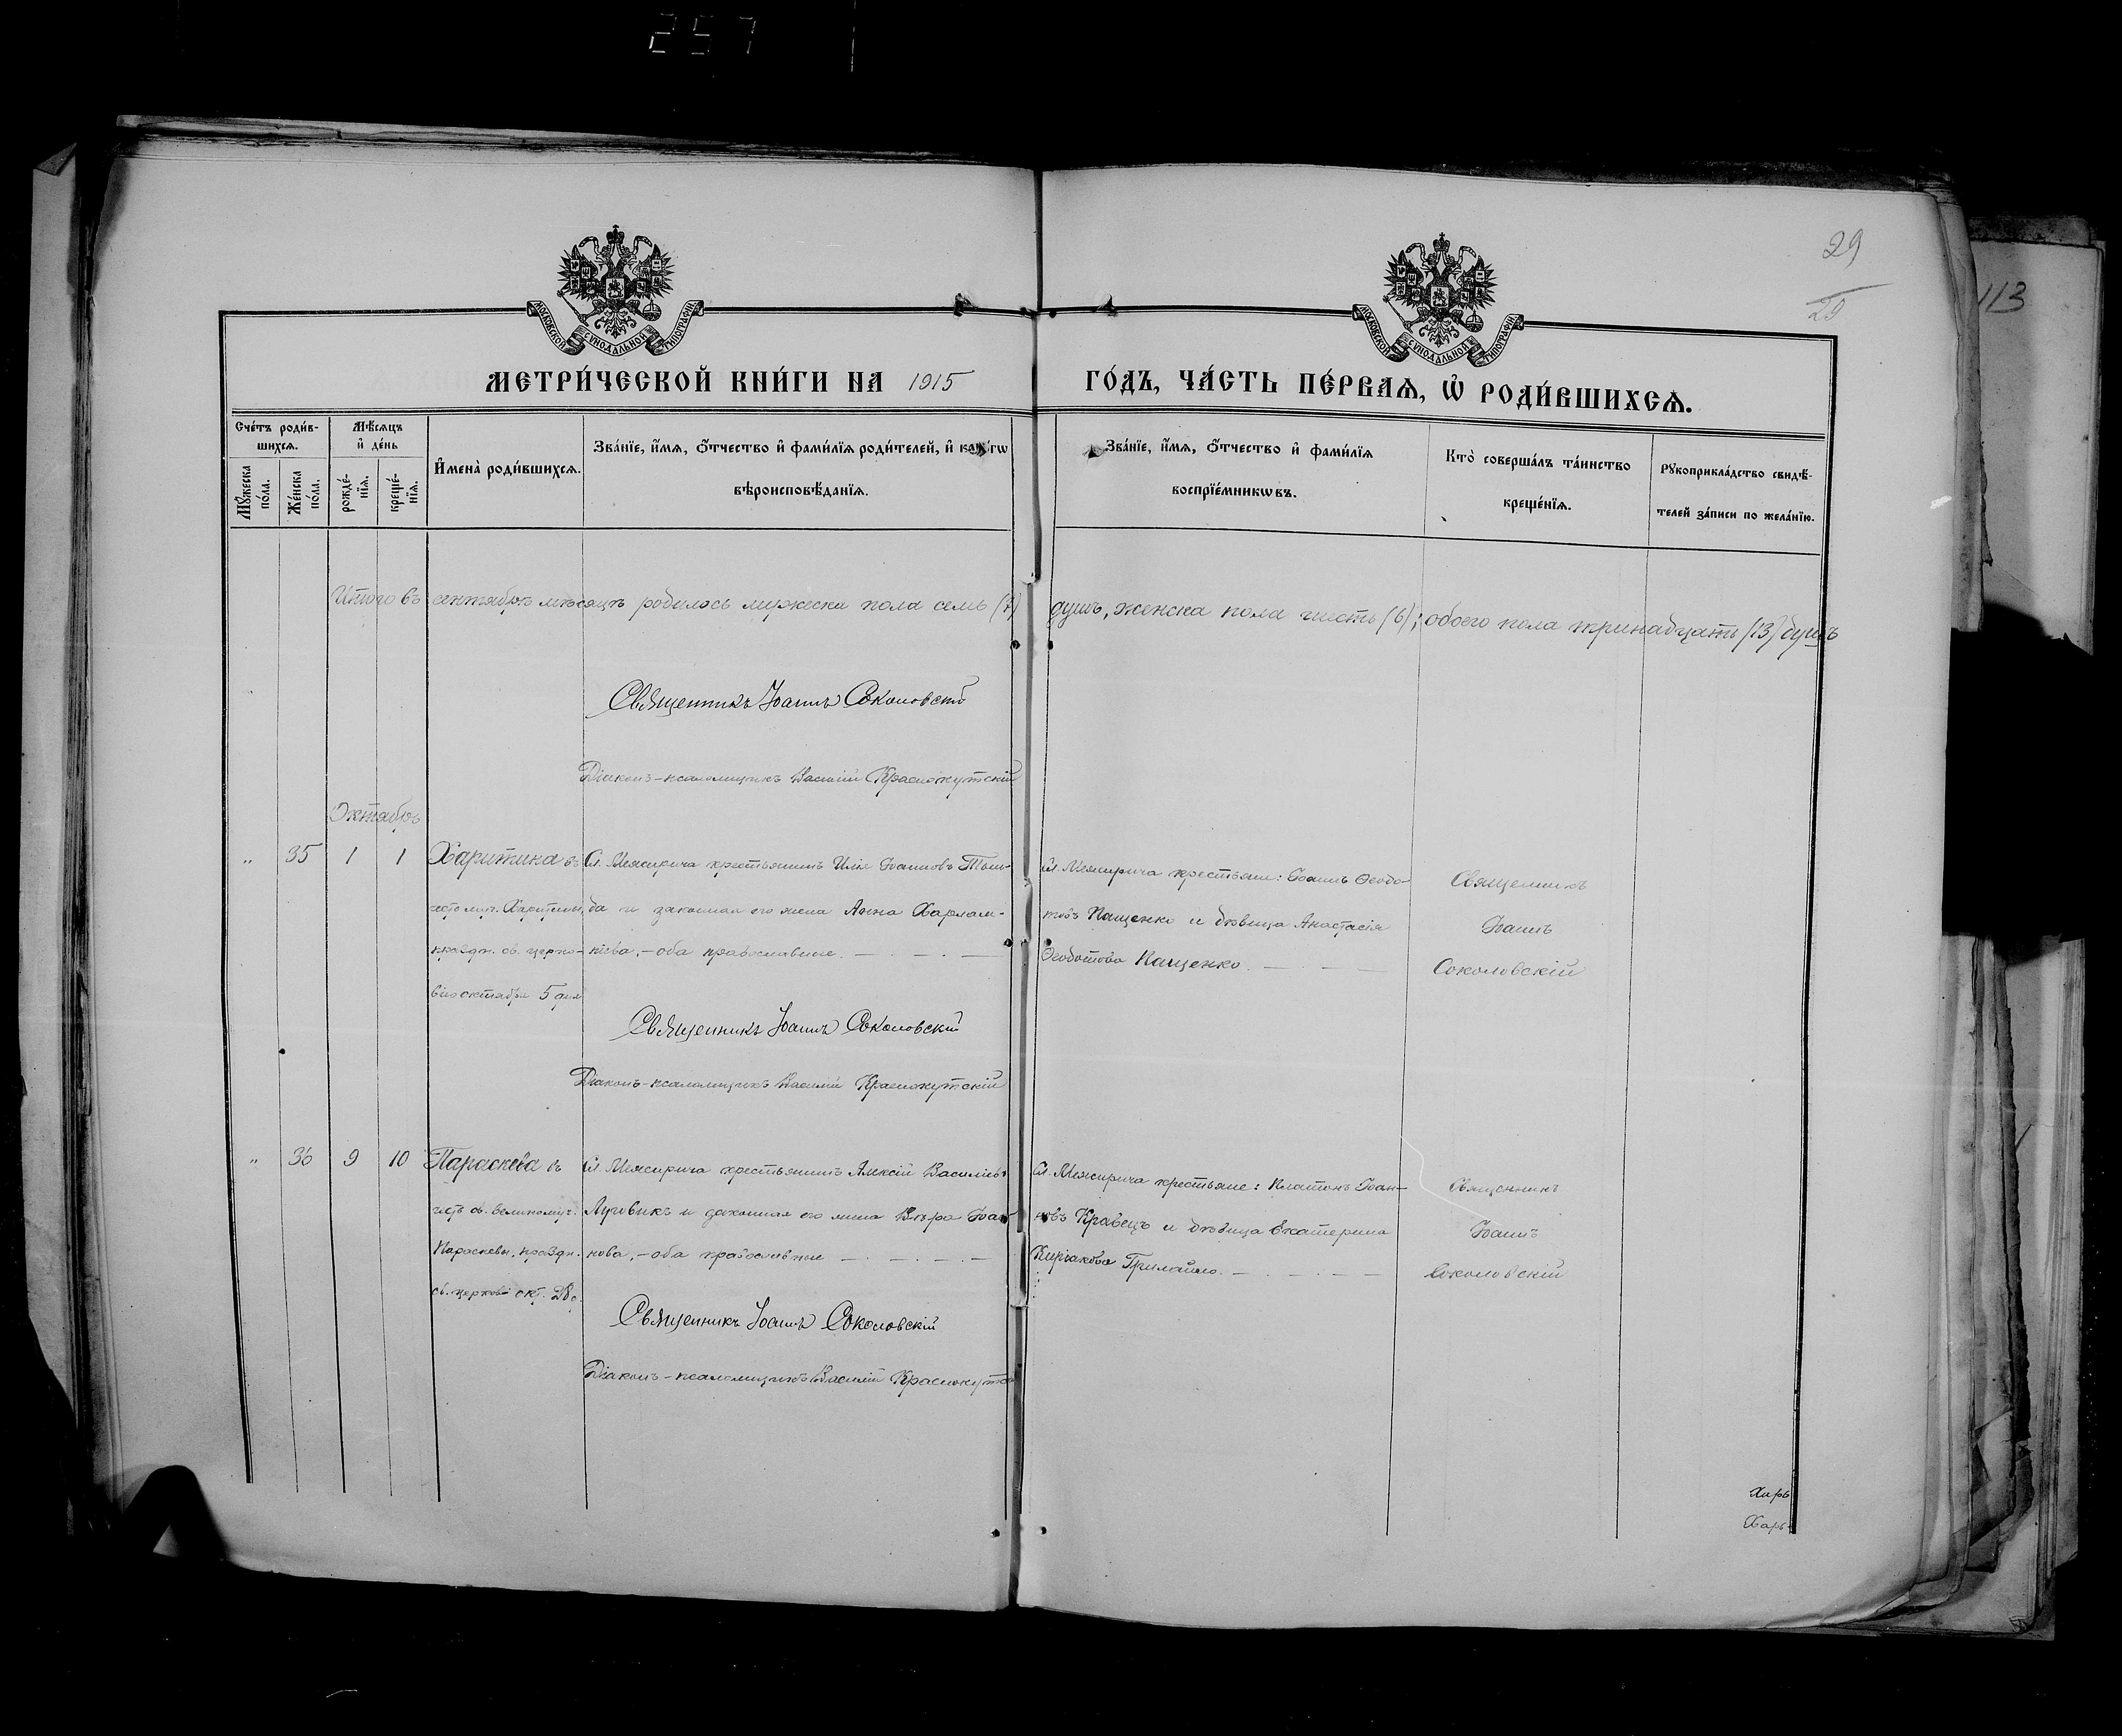 257
29
29
113
МОСКОВСКОЙ СѴНОДАЛЬНОЙ ТИПОГРАФІИ
МОСКОВСКОЙ СѴНОДАЛЬНОЙ ТИПОГРАФІИ
МЕТРИ́ЧЕСКОЙ КНИ́ГИ НА 1915
ГО́ДЪ, ЧА́СТЬ ПЕ́РВАѦ, Ѽ РОДИ́ВШИХСѦ.
Сче́тъ роди́в-
шихсѧ.
Мꙋ́жеска по́ла.
Же́нска по́ла.
Мѣ́сѧцъ
и҆ де́нь
рожде́-
нїѧ.
креще́-
нїѧ.
И҆мена̀ роди́вшихсѧ.
Зва́нїе, и҆́мѧ, ѻ҆́тчество и҆ фами́лїѧ роди́телей, и҆ како́гѡ
вѣроисповѣ́данїѧ.
Зва́нїе, и҆́мѧ, ѻ҆́тчество и҆ фами́лїѧ
воспрїе́мникѡвъ.
Кто̀ соверша́лъ та́инство
креще́нїѧ.
Рꙋкоприкла́дство свидѣ́-
телей за́писи по жела́нїю.
Итого въ сентябрѣ мѣсяцѣ родилось мужеска пола семь (7) душъ, женска пола шесть (6); обоего пола тринадцать (13) душъ
Священникъ Іоаннъ Соколовскій
Діаконъ-псаломщикъ Василій Краснокутскій
Октябрь
" 35 1 1 Харитина въ
Сл. Межирича крестьянинъ Илія Іоанновъ
да и законная его жена Анна Харлам-
піева, - оба православные.
праздн. св. церко-
вію октября 5 дня
сл. Межирича крестьяне: Іоаннъ Ѳеодо-
товъ Пащенко и дѣвица Анастасія
Ѳеодотова Пащенко.
Священникъ
Іоаннъ
Соколовскій
Священникъ Іоаннъ Соколовскій
Діаконъ-псаломщикъ Василій Краснокутскій
" 36 9 10 Параскева въ
честь св. великомуч.
Параскевы, праздн.
св. церков. окт. 28 д.
Сл. Межирича крестьянинъ Алексій Васильевъ
Луговикъ и законная его жена Вѣра Іоан-
нова, - оба православные
Сл. Межирича крестьяне: Платонъ Іоан-
новъ Кравецъ и дѣвица Екатерина
Священникъ
Іоаннъ
Соколовскій
Священникъ Іоаннъ Соколовскій
Діаконъ-псаломщикъ Василій Краснокутс
Харь
Харь-